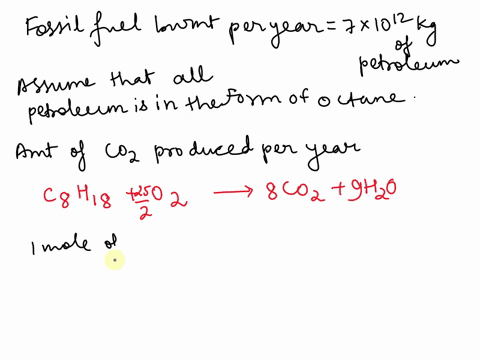 Fossil fuel burnt per year = 7 × 10¹² kg
of
petroleum
Assume that all
petroleum is in the form of octane.
Amt of CO₂ produced per year
C₈H₁₈ + 25/2 O₂ → 8CO₂ + 9H₂O
1 mole of